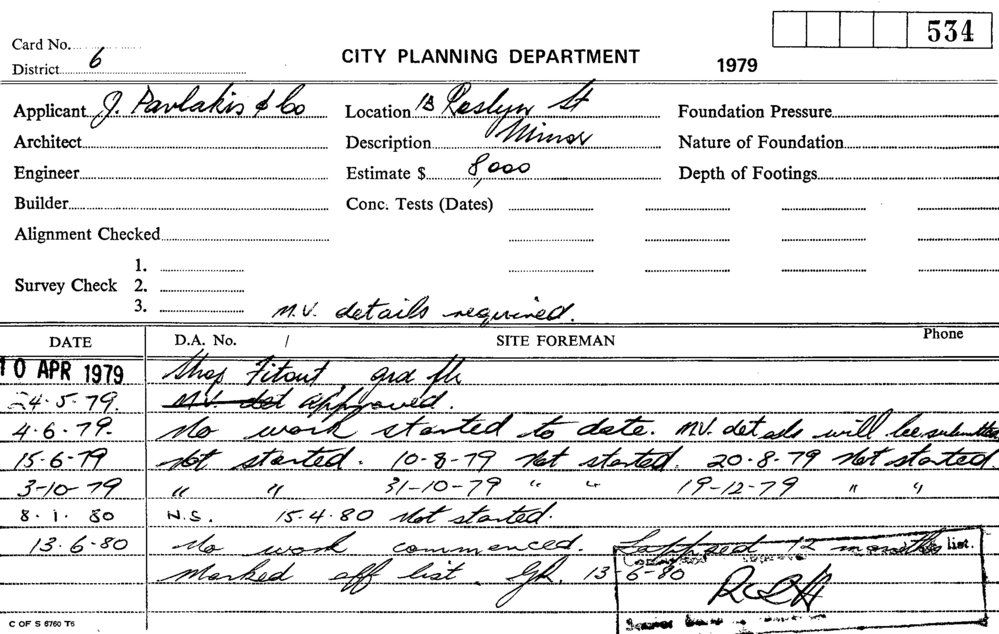 534
Card No.
District 6
CITY PLANNING DEPARTMENT
1979
Applicant J. Pavlakis & Co Location 13 Roslyn St Foundation Pressure
Architect Description Minor Nature of Foundation
Engineer Estimate $ 8,000 Depth of Footings
Builder Conc. Tests (Dates)
Alignment Checked
1.
Survey Check 2.
3.
M.V. details required.
DATE D.A. No. / SITE FOREMAN Phone
10 APR 1979 Shop Fitout, grd flr
24.5.79. M.V. det approved.
4-6-79. No work started to date. M.V. details will be submitted
15-6-79 Not started. 10-8-79 Not started. 20-8-79 Not started.
3-10-79 " " 31-10-79 " " 19-12-79 " "
8.1.80 N.S. 15.4.80 Not started.
13.6-80 No work commenced. Lapsed 12 months list.
Marked off list. 13-6-80
C OF S 6760 T6